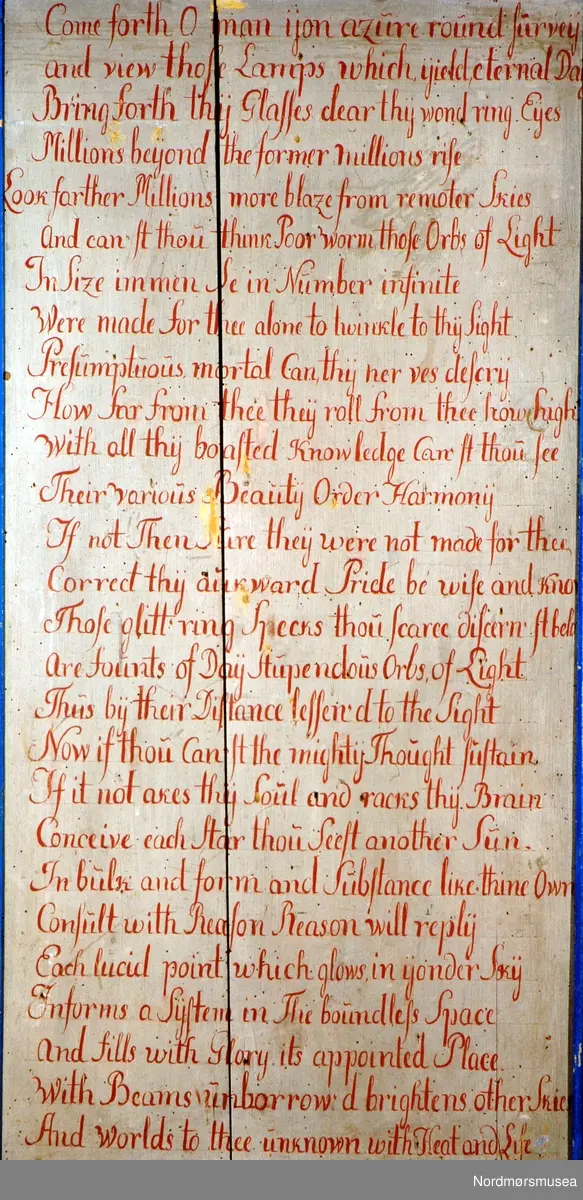 Come forth O man yon azure round survey
and view those Lamps which yield eternal Day
Bring forth thy Glasses clear thy wond ring Eyes
Millions beyond the former millions rise
Look farther Millions more blaze from remoter Skies
And can st thou think Poor worm those Orbs of Light
In Size immen Se in Number infinite
Were made for thee alone to twinkle to thy Sight
Presumptuous mortal Can thy ner ves descry
How far from thee they roll from thee how high
With all thy boasted Knowledge Can st thou see
Their various Beauty Order Harmony
If not Then Sure they were not made for thee
Correct thy aukward Pride be wise and Know
Those glitt ring Specks thou scarce discern st belo
Are founts of Day stupendous Orbs, of Light
Thus by their Distance lessen'd to the Sight
Now if thou Can st the mighty Thought sustain
If it not akes thy Soul and racks thy Brain
Conceive each Star thou Seest another Sun.
In bulk and form and Substance like thine Own
Consult with Reason Reason will reply
Each lucid point which glows, in yonder Sky
Informs a System in The boundless Space
And fills with Glory its appointed Place
With Beams unborrow'd brightens other Skies
And worlds to thee unknown with Heat and Life
Nordmørsmusea